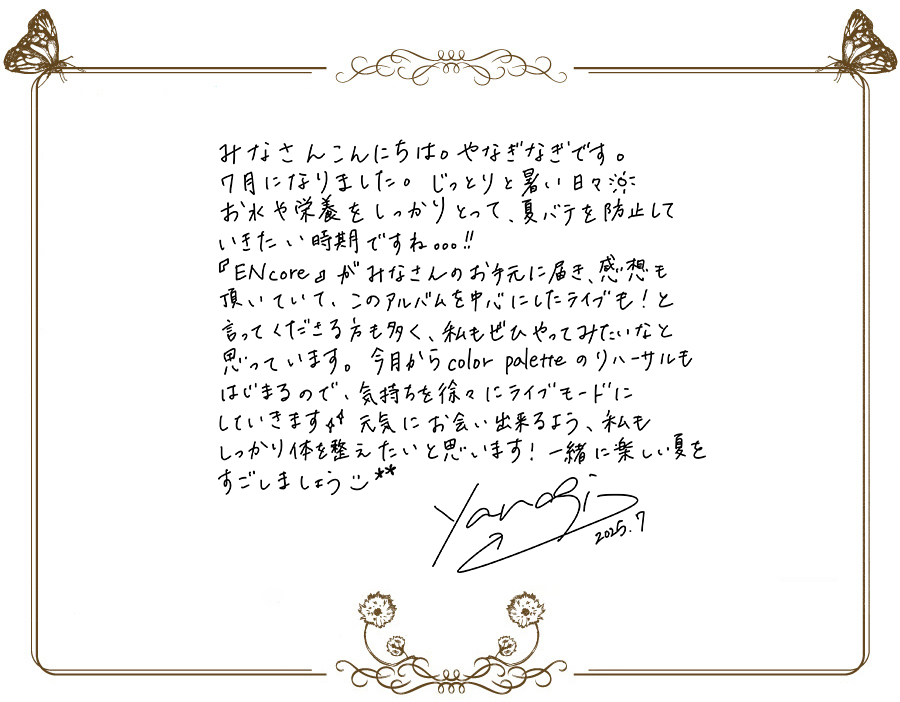 みなさんこんにちは。やなぎなぎです。
7月になりました。じっとりと暑い日々☼
お水や栄養をしっかりとって、夏バテを防止して
いきたい時期ですね...!!
『ENcore』がみなさんのお手元に届き、感想も
頂いていて、このアルバムを中心にしたライブも!と
言ってくださる方も多く、私もぜひやってみたいなと
思っています。今月からcolor paletteのリハーサルも
はじまるので、気持ちを徐々にライブモードに
していきます 元気にお会い出来るよう、私も
しっかり体を整えたいと思います!一緒に楽しい夏を
すごしましょう**
yanagi
2025.7